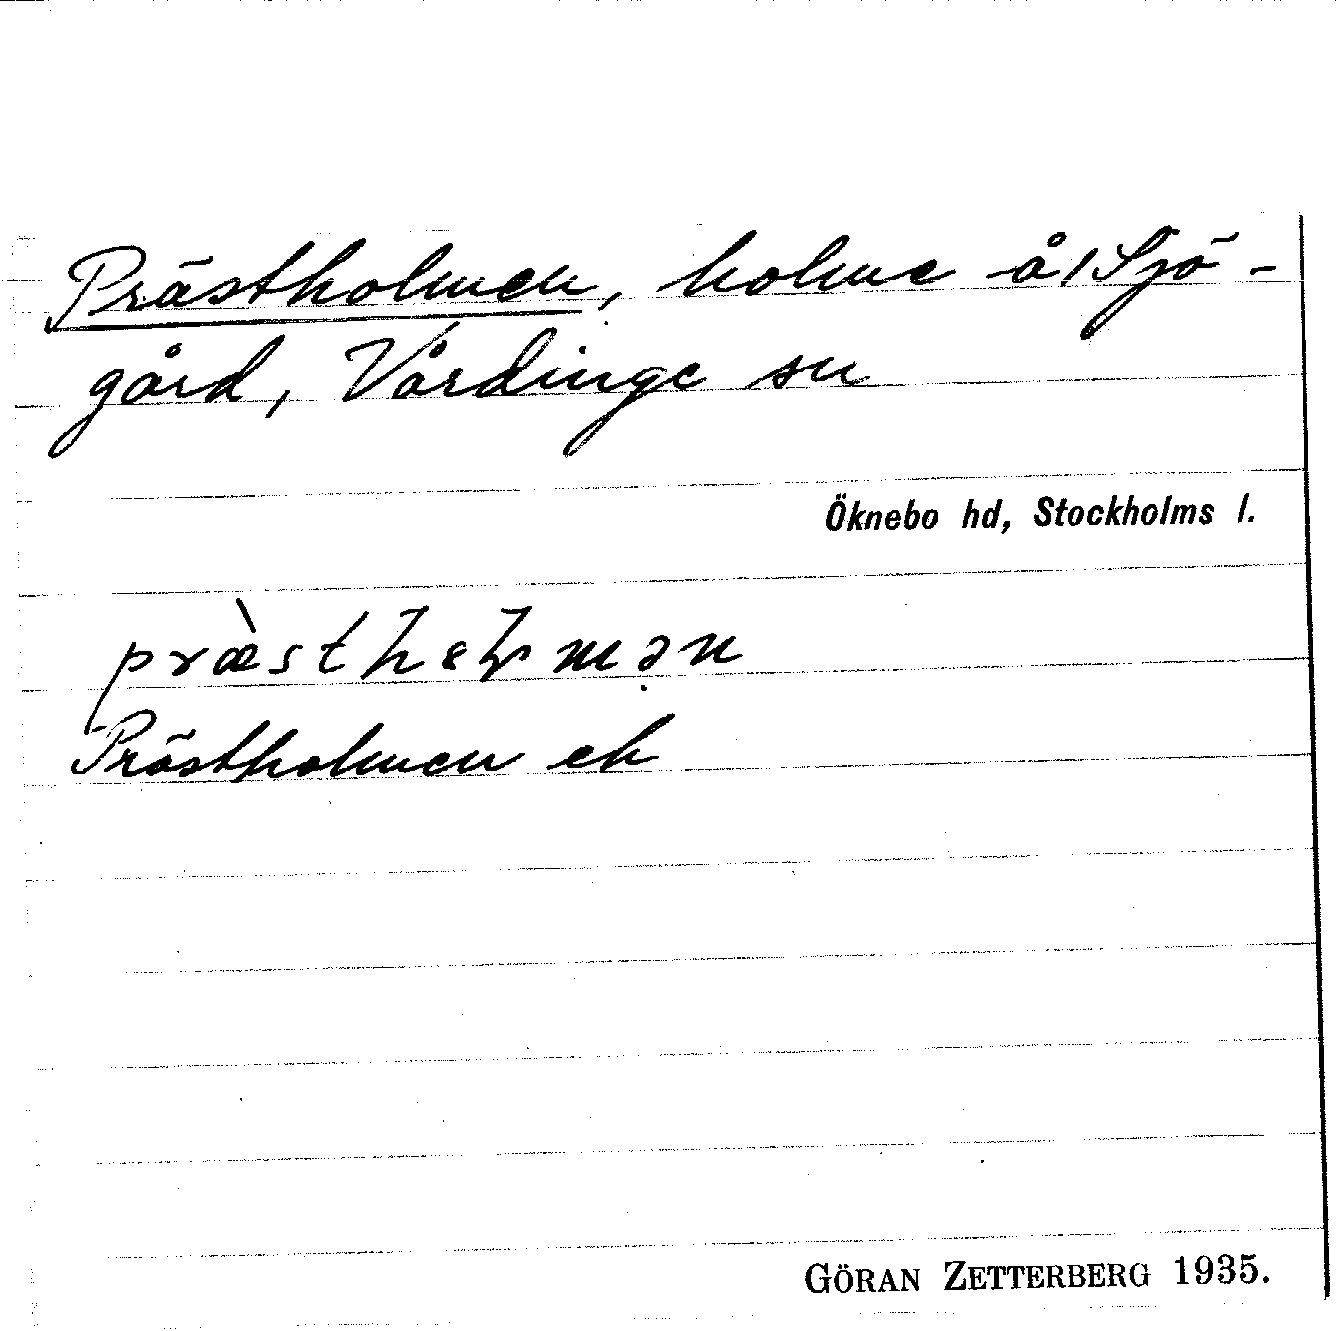 Prästholmen, holme å 1 Sjö-
gård, Vårdinge sn
Öknebo hd, Stockholms l.
Prästholmen ek
GÖRAN ZETTERBERG 1935.